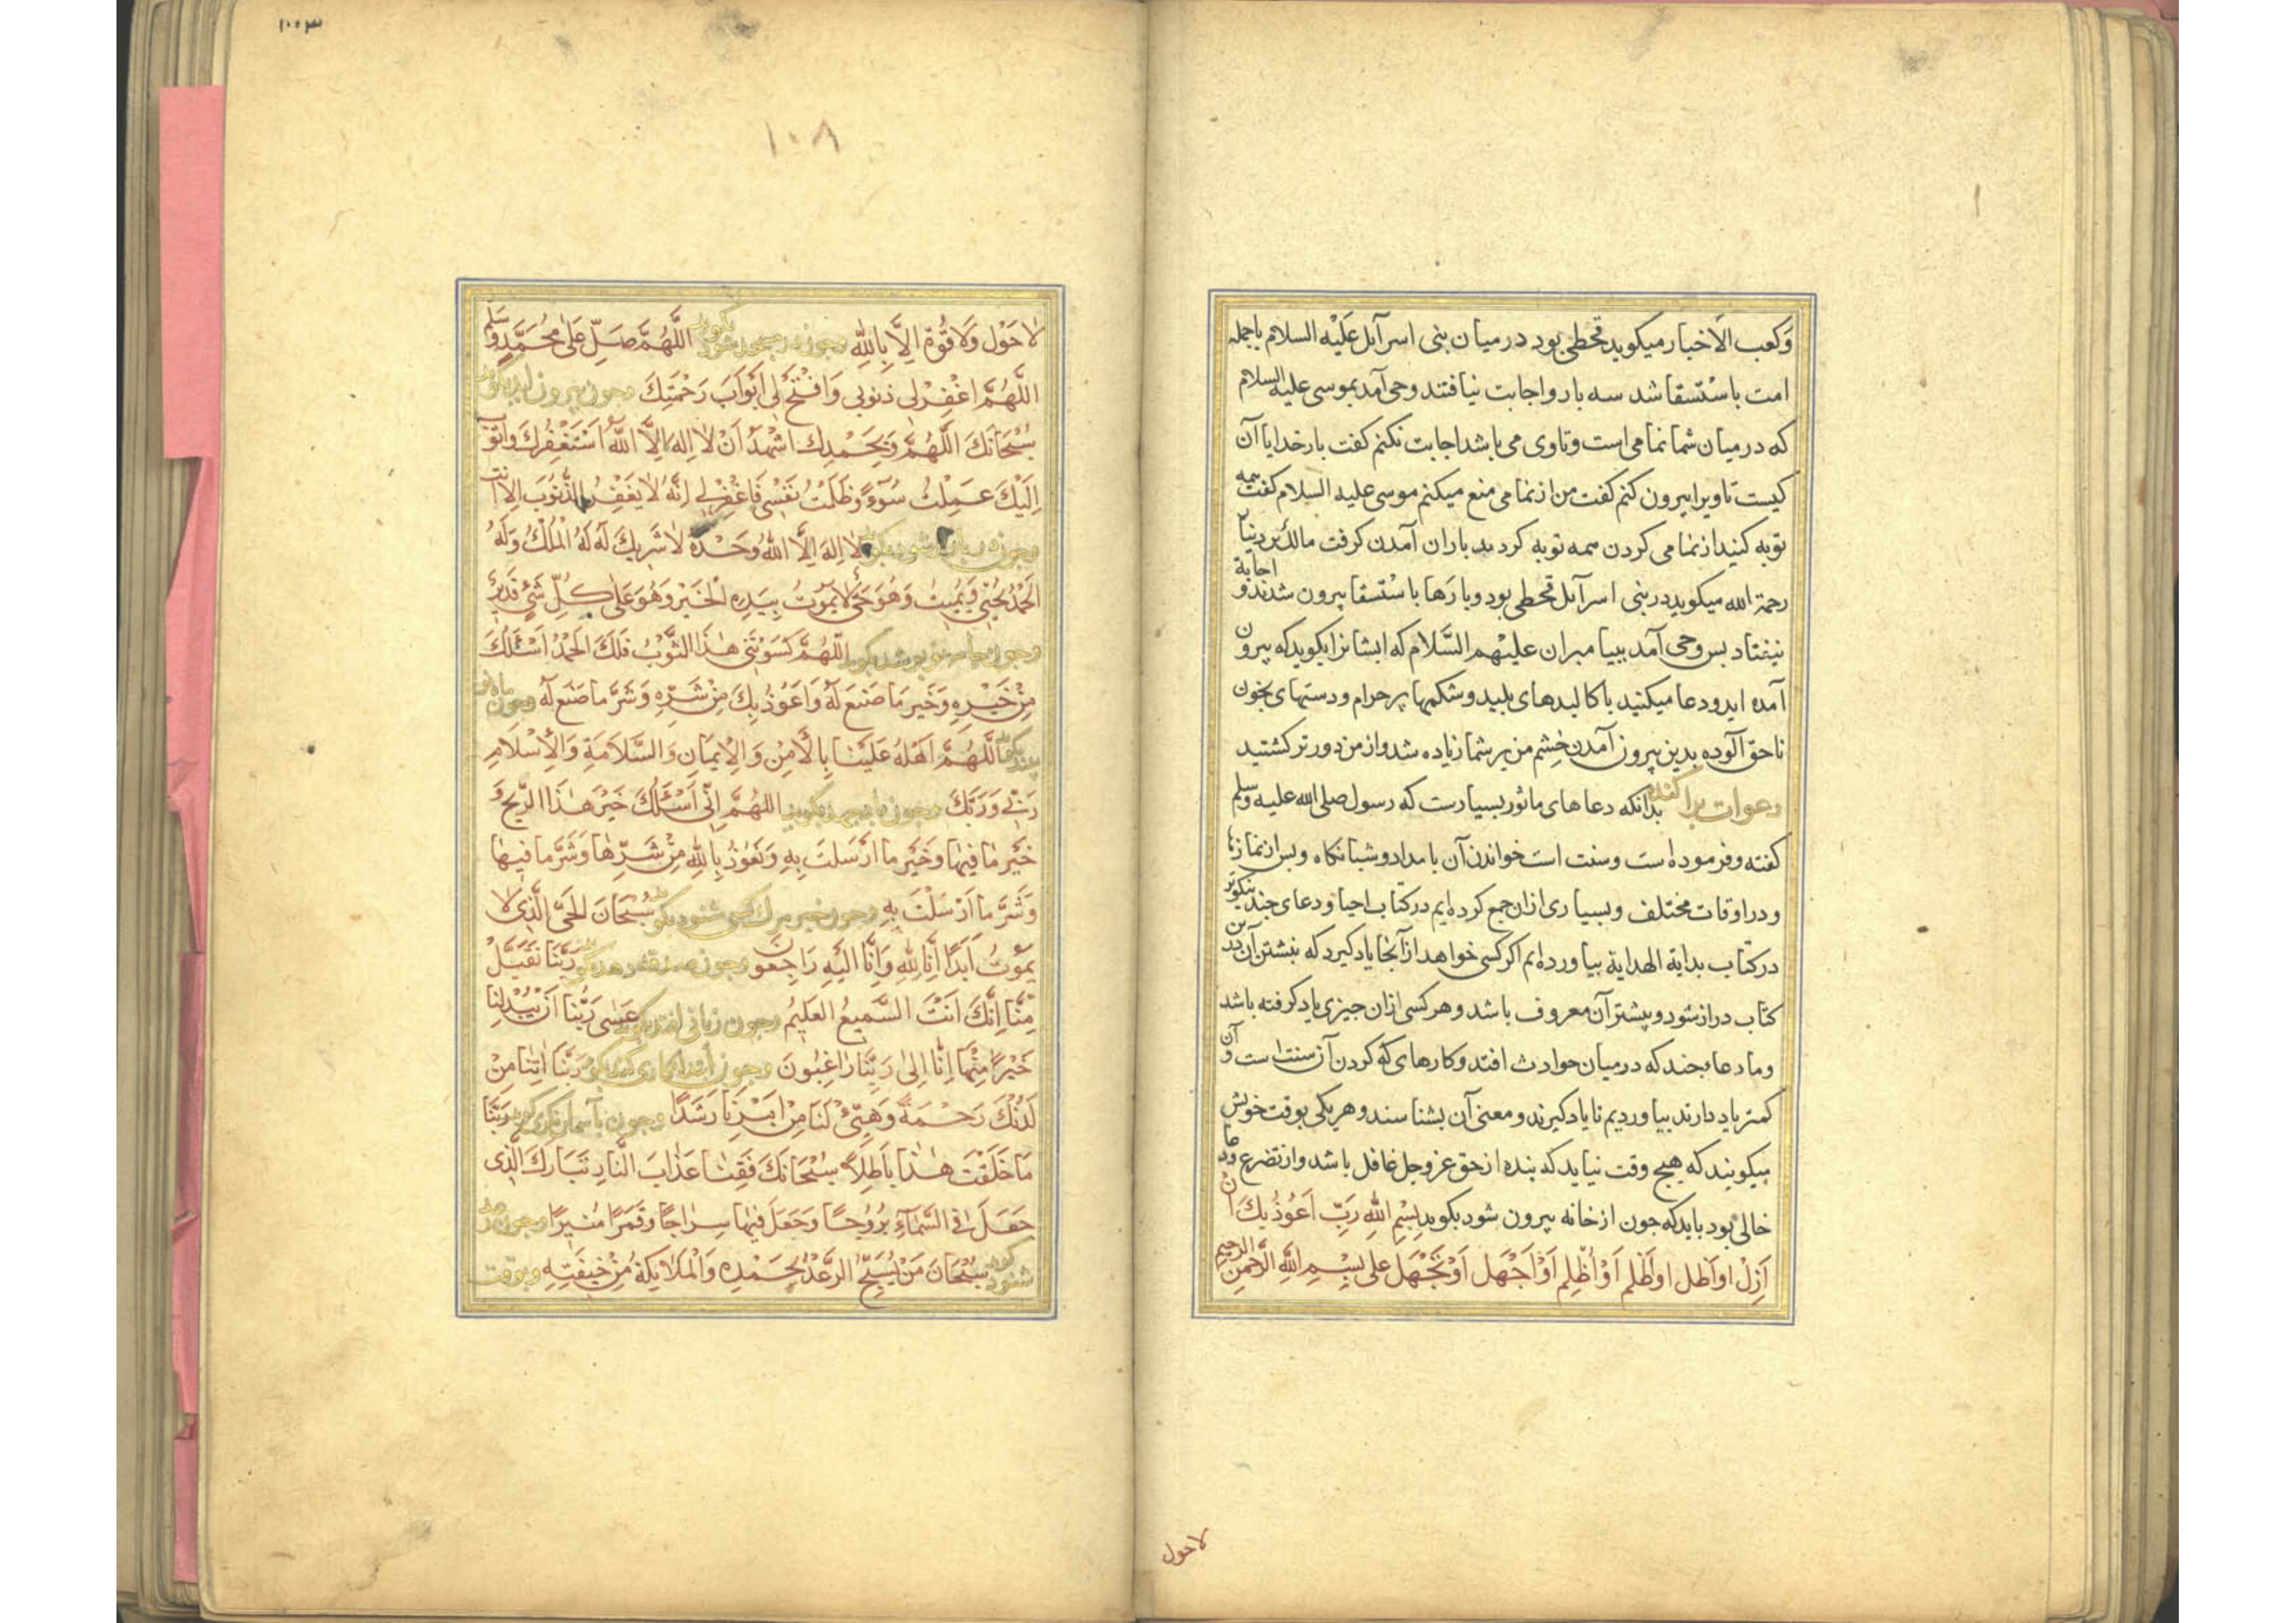 وَكعب الاَخبار ميكويد قحطى بود درميان بنى اسرآئل عَلَيْه السلام باجمله
امت باسْتسقا شد سه بار و اجابت نيافتند وحى آمد بموسى عليه السلام
كه درميان شما نمامى است وتا وى مى باشد اجابت نكنم كفت بارخدايا آن
كيست تا ويرا بيرون كنم كفت من از نمامى منع ميكنم موسى عليه السلام كفت همه
توبه كنيد از نمامى كردن همه توبه كردند باران آمدن كرفت مالك بن دينار
رحمة الله ميكويد در بنى اسرآئل قحطى بود وبارها باسْتسقا بيرون شدند و اجابة
نيفتاد بس وحى آمد ببيامبران عليْهم السَّلام كه ايشانرا بكويد كه بيرون
آمده ايد و دعا ميكنيد با كالبدهاى بليد وشكمها پر حرام ودستهاى بخون
ناحق آلوده بدين بيرون آمدن خشم من بر شما زياده شد واز من دورتر كشتيد
دعوات پراكنده بدانكه دعاهاى ماثور بسيارست كه رسول صلى الله عليه وسلم
كفته وفرموده است وسنت است خواندن آن بامداد وشبانكاه وبس از نمازها
ودر اوقات مختلف وبسيارى ازان جمع كرده ايم در كتاب احيا ودعاى چند نيكوتر
در كتاب بداية الهداية بياورده ايم اكر كسى خواهد از آنجا ياد كيرد كه نبشتن آن درين
كتاب دراز شود وبيشتر آن معروف باشد وهر كسى ازان جيزى ياد كرفته باشد
وما دعاء چند كه درميان حوادث افتد وكارهاى كه كردن آن سنت است و آن
كمتر ياد دارند بياورديم تا ياد كيرند ومعنى آن بشناسند وهر يكى بوقت خويش
ميكويند كه هيج وقت نبايد كه بنده از حق عز وجل غافل باشد واز تضرع ودعا
خالى بود بايد كه جون از خانه بيرون شود بكويد بِسْمِ اللهِ رَبِّ اَعُوْذُ بِكَ اَن
اَزِلَّ او اَظل او اَظْلم اَوْ اُظْلم اَوْ اَجْهَل اَوْ يُجْهَل على بِسْمِ اللهِ الرَّحْمنِ الرحيم
لاحول
١٠٠٣
١٠٨
لَاحَوْلَ وَلَاقُوَّةَ اِلَّا بِاللهِ وجون در مسجد شود بكويد اللّٰهُمَّ صَلِّ عَلىٰ مُحَمَّدٍ وَسَلم
اللّٰهُمَّ اغْفِرْلى ذنوبى وَافْتَحْ لى اَبْوَابَ رَحْمَتِكَ وجون بيرون آيد بكويد
سُبْحَانَكَ اللّٰهُمَّ وَبِحَمْدِكَ اشْهَدُ اَنْ لَا اِلهَ اِلَّا اللّٰهُ اَسْتَغْفِرُكَ واَتوب
اِلَيْكَ عَمِلْتُ سُوْءً وَظَلَمْتُ نَفْسِى فَاغْفِرْلى اِنَّهُ لا يَغْفِرُ الذُّنُوْبَ اِلَّا اَنت
وجون در بازار شود بكويد لا اِلهَ اِلَّا اللهُ وَحْدَهُ لَا شَرِيكَ لَهُ لَهُ الْمُلْكُ وَلَهُ
الحَمْدُ يُحْيِى وَيُمِيتُ وَهُوَ حَىٌّ لا يَمُوْتُ بِيَدِهِ الْخَيْرُ وَهُوَ عَلىٰ كُلِّ شَىْءٍ قَدِيرٌ
وجون جامه نو پوشد بكويد اللّٰهُمَّ كَسَوْتَنِى هٰذَا الثَّوْبَ فَلَكَ الحَمْدُ اَسْئَلُكَ
مِنْ خَيْرِهِ وَخَيْرِ مَا صَنعَ لَهُ وَاَعُوْذُ بِكَ مِنْ شَرِّهِ وَشَرَّ مَا صَنعَ لَهُ وجون ماه نو
بيند بكويد اللّٰهُمَّ اَهِلَّهُ عَلَيْنَا بِالْاَمْنِ وَالْاِيْمَانِ وَالسَّلَامَةِ وَالْاِسْلَامِ
رَبِّى وَرَبُّكَ وجون باد جهد بكويد اللّٰهُمَّ اِنِّى اَسْئَلُكَ خَيْرَ هٰذَا الرِّيحِ وَ
خَيْرَ مَا فِيهَا وَخَيْرَ مَا اَرْسَلتَ بِهِ وَنَعُوْذُ بِاللهِ مِنْ شَرِّهَا وَشَرَّ مَا فِيهَا
وَشَرَّ مَا اَرْسَلْتَ بِهِ وجون خبر مرك كسى شنود بكويد سُبْحَانَ الحَىِّ الَّذِى لَا
يَمُوْتُ اَبَدًا اِنَّا لِلّٰهِ وَاِنَّا اِلَيْهِ رَاجِعُونَ وجون صدقه دهد بكويد رَبَّنَا تَقَبَّلْ
مِنَّا اِنَّكَ اَنْتَ السَّمِيعُ العَلِيمُ وجون زيانى افتد بكويد عَسىٰ رَبُّنَا اَنْ يُبْدِلَنَا
خَيْرًا مِنْهَا اِنَّا اِلىٰ رَبِّنَا رَاغِبُونَ وجون ابتداء كارى كند بكويد رَبَّنَا اٰتِنَا مِنْ
لَدُنْكَ رَحْمَةً وَهَيِّئْ لَنَا مِنْ اَمْرِنَا رَشَدًا وجون بآسمان نكرد كويد رَبَّنَا
مَا خَلَقْتَ هٰذَا بَاطِلًا سُبْحَانَكَ فَقِنَا عَذَابَ النَّارِ تَبَارَكَ الَّذِى
جَعَلَ فِى السَّمَاءِ بُرُوْجًا وَجَعَلَ فِيهَا سِرَاجًا وَقَمَرًا مُنِيرًا وجون رعد
شنود كويد سُبْحَانَ مَنْ يُسَبِّحُ الرَّعْدُ بِحَمْدِهِ وَالْمَلَائِكَةُ مِنْ خِيفَتِهِ وبوقت